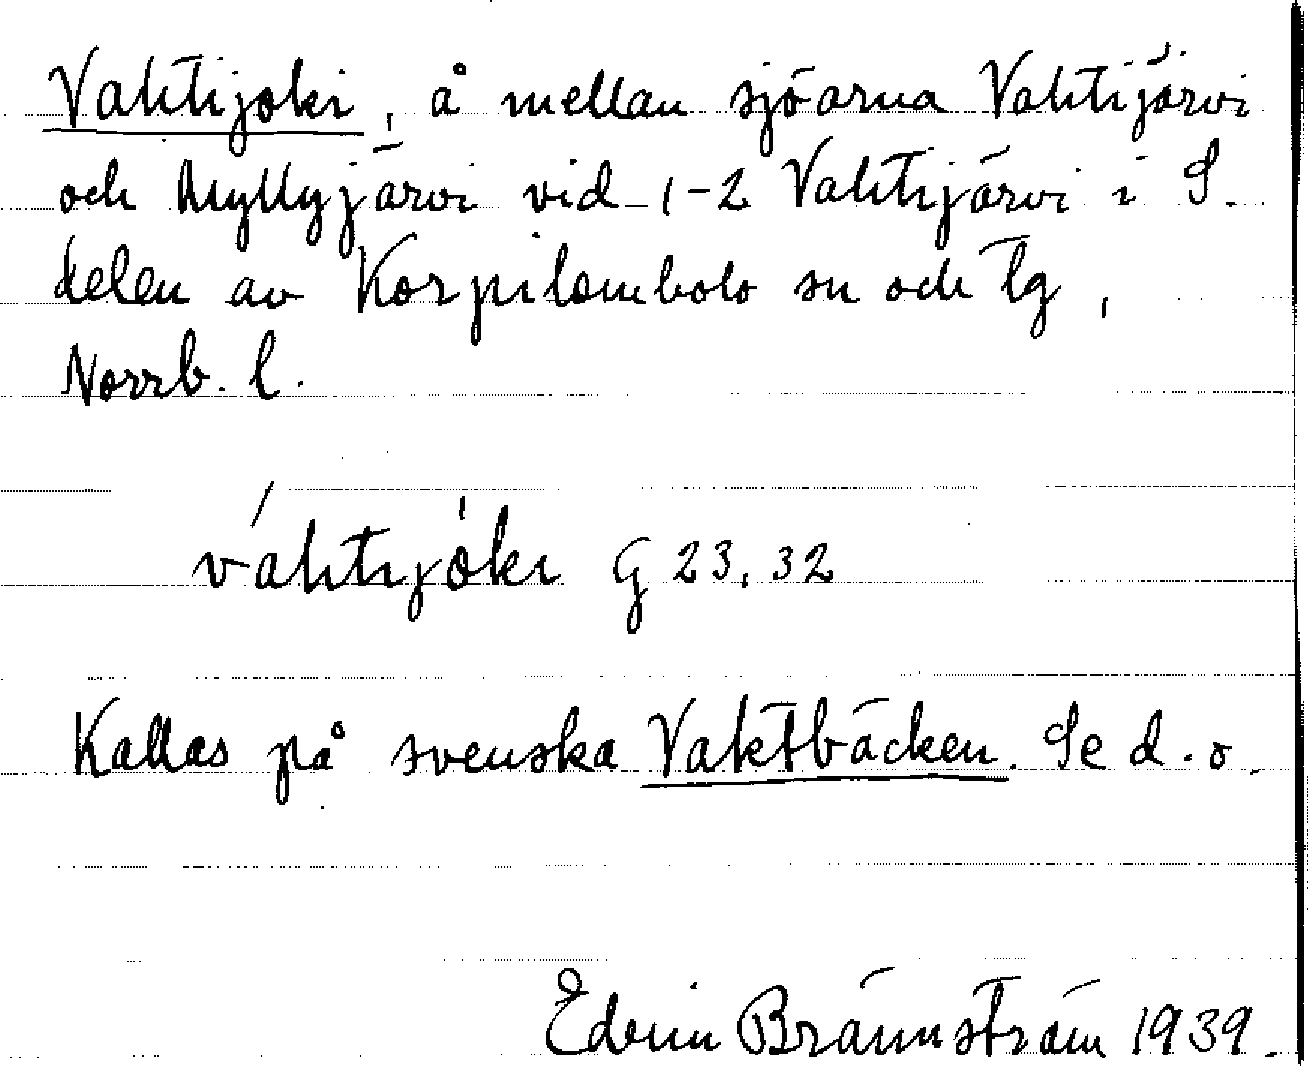 Vahtijoki, å mellan sjöarna Vahtijärvi
och Myllyjärvi vid 1-2 Vahtijärvi i S.
delen av Korpilombolo sn och tg,
Norrb. l.
váhtijòki G 23, 32
Kallas på svenska Vaktbäcken. Se d. o.
Edvin Brännström 1939.